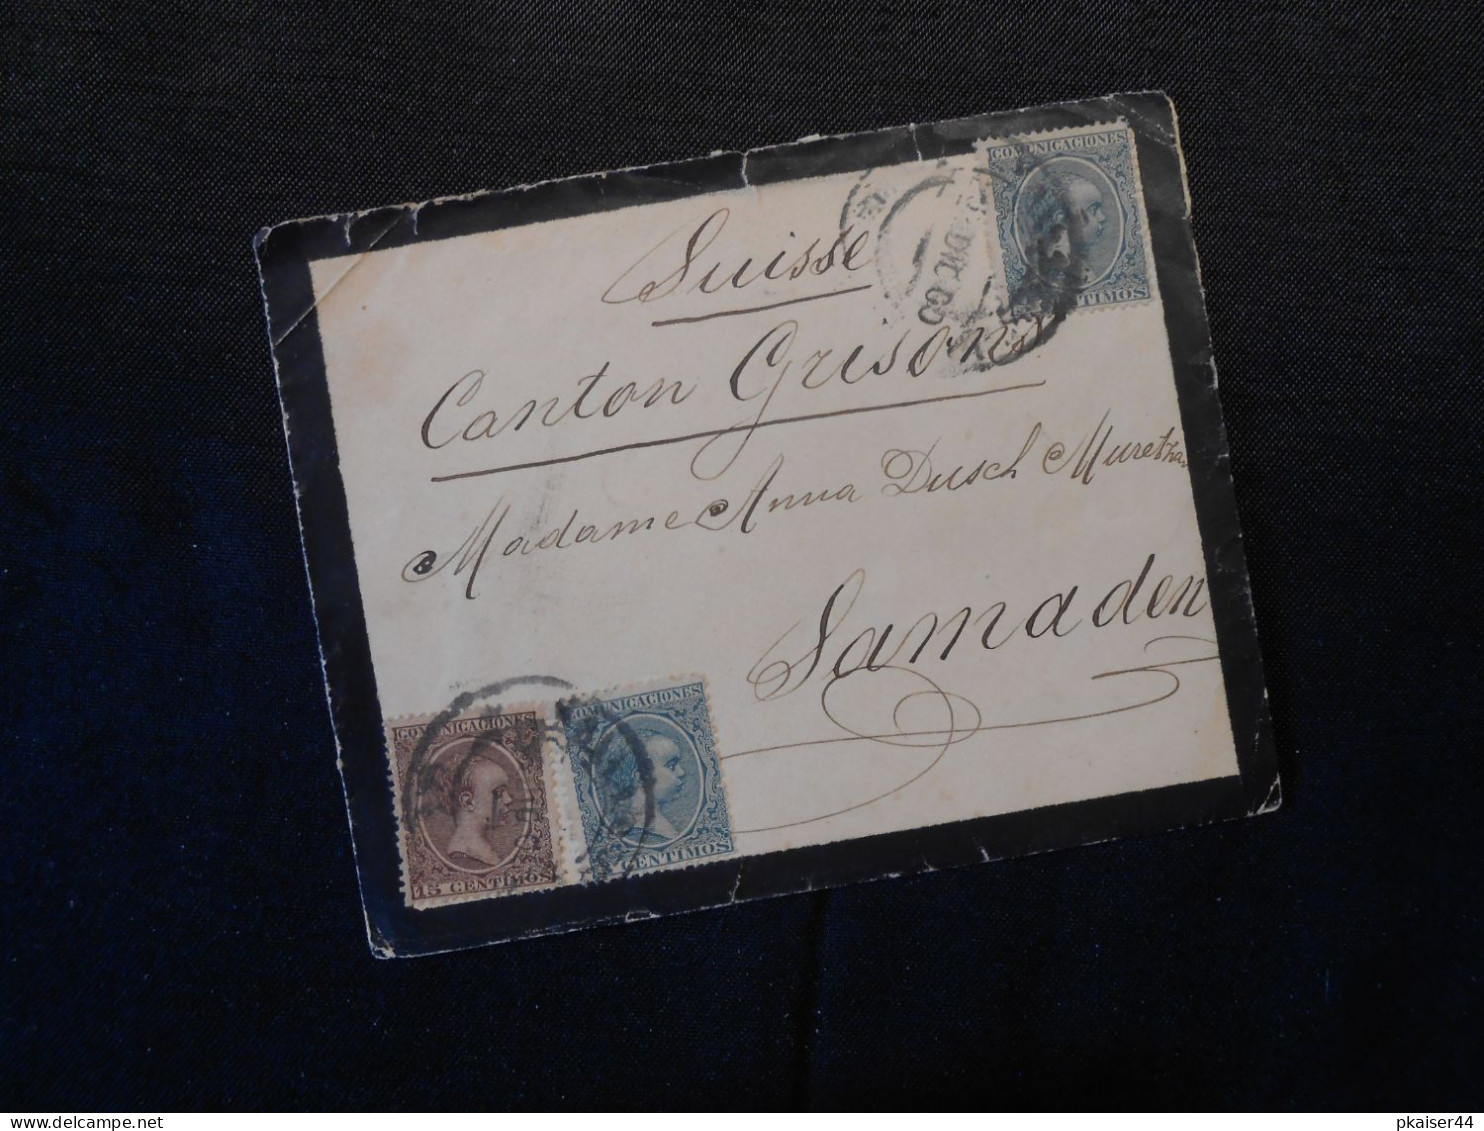 COMUNICACIONES
CENTIMOS
Suisse
Canton Grisons
Madame Anna Dusch
Samaden
COMUNICACIONES
15 CENTIMOS
COMUNICACIONES
CENTIMOS
delcampe.net
pkaiser44